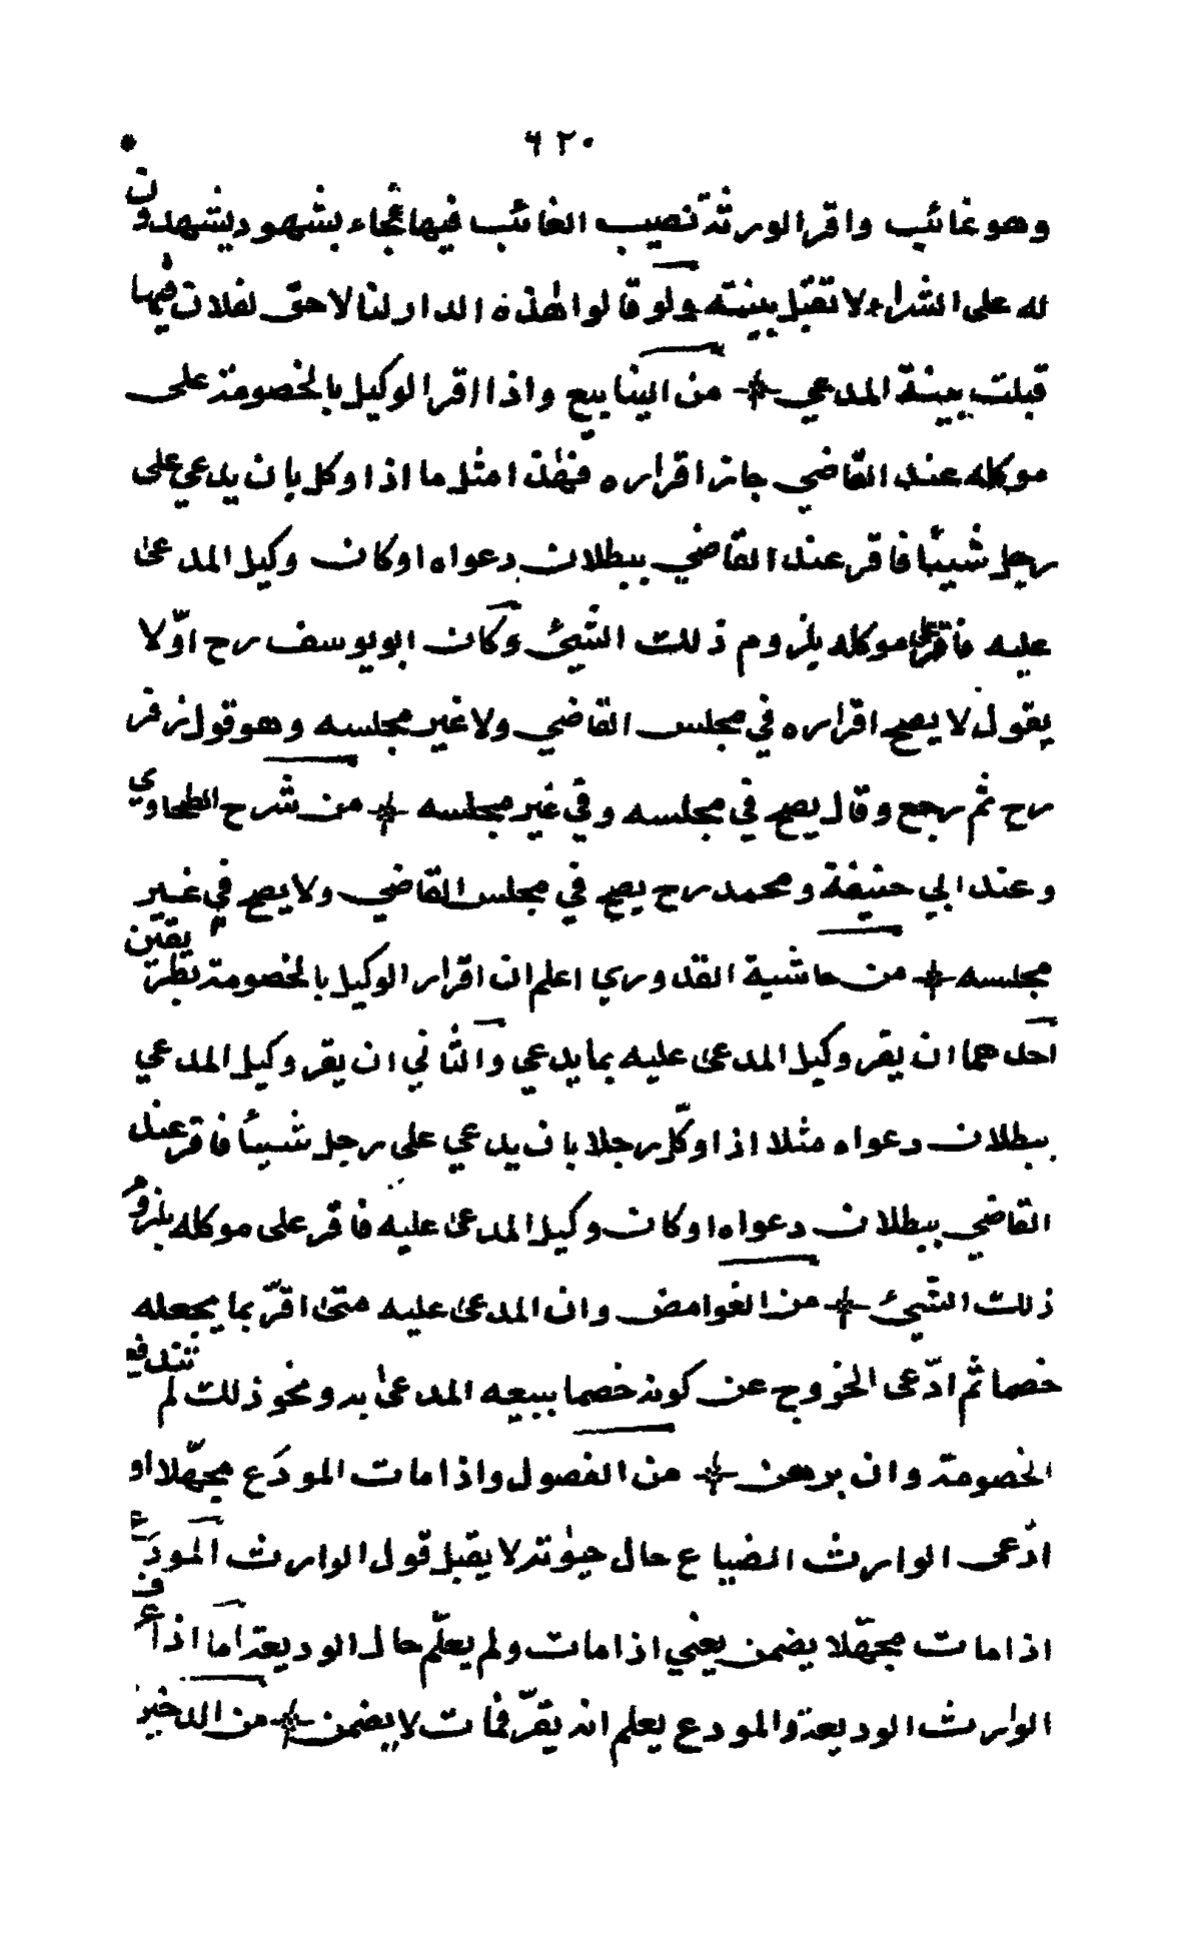 ٦٢٠
وهو غائب واقر الورثة نصيب الغائب فيها فجاء بشهود يشهدون
له على الشراء لا تقبل بينته ولو قالوا هٰذه الدار لنا لا حق لفلان فيها
قبلت بينة المدعي * من الينابيع واذا اقر الوكيل بالخصومة على
موكله عند القاضي جاز اقراره فهٰذا مثل ما اذا وكل بان يدعي على
رجل شيئًا فاقر عند القاضي ببطلان دعواه او كان وكيل المدعى
عليه فاقر على موكله بلزوم ذلك الشيئ وكان ابو يوسف رح اوّلا
يقول لا يصح اقراره في مجلس القاضي ولا غير مجلسه وهو قول زفر
رح ثم رجع وقال يصح في مجلسه وفي غير مجلسه * من شرح الطحاوي
وعند ابي حنيفة ومحمد رح يصح في مجلس القاضي ولا يصح في غير
مجلسه * من حاشية القدوري اعلم ان اقرار الوكيل بالخصومة بطريقين
احدهما ان يقر وكيل المدعى عليه بما يدعي والثاني ان يقر وكيل المدعي
ببطلان دعواه مثلا اذا وكّل رجلا بان يدعي على رجل شيئًا فاقر عند
القاضي ببطلان دعواه او كان وكيل المدعى عليه فاقر على موكله بلزوم
ذلك الشيئ * من الغوامض وان المدعى عليه متى اقرّ بما يجعله
خصما ثم ادّعى الخروج عن كونه خصما ببيعه المدعى به ونحو ذلك لم تندفع
الخصومة وان برهن * من الفصول واذا مات المودَع مجهّلا او
ادّعى الوارث الضياع حال حيٰوته لا يقبل قول الوارث المودَع
اذا مات مجهّلا يضمن يعني اذا مات ولم يعلّم حال الوديعة اما اذا عرف
الوارث الوديعة والمودع يعلم انه يقرّ فمات لا يضمن * من الذخير